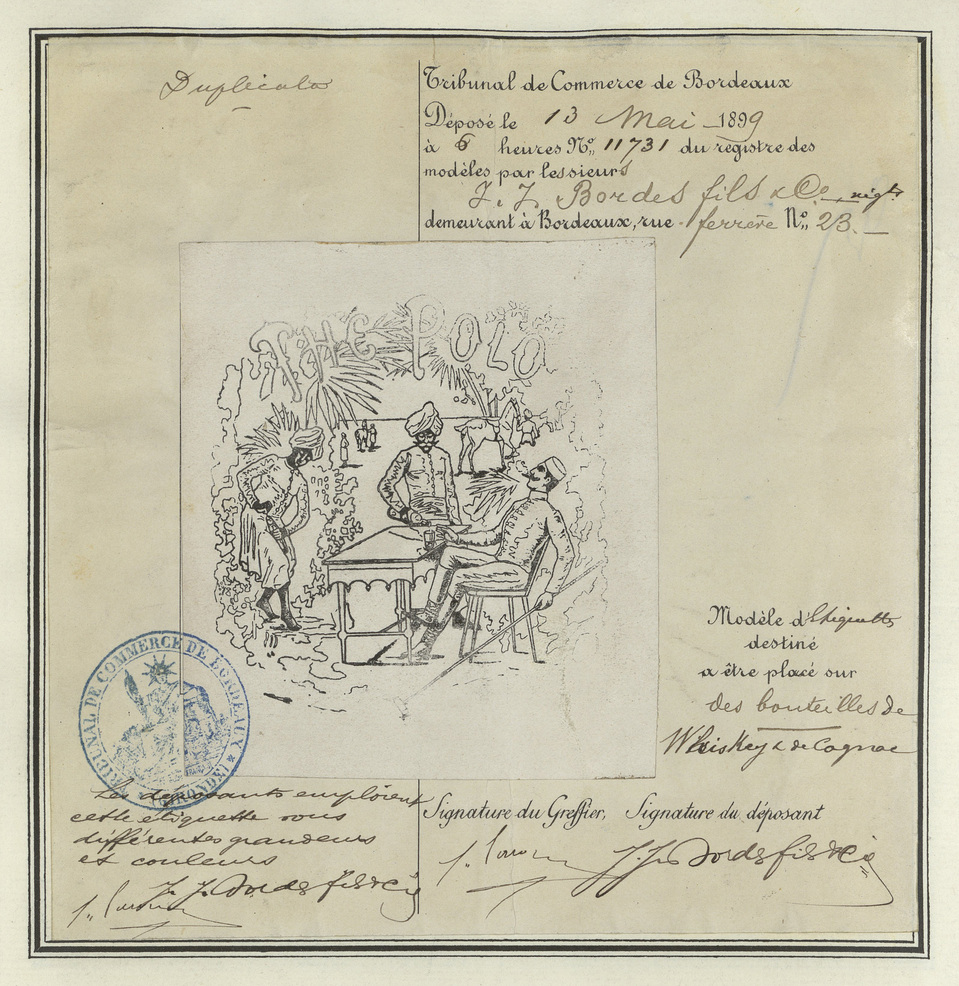 Duplicata
Tribunal de Commerce de Bordeaux
Déposé le 13 Mai 1899
à 6 heures N° 11731 du registre des
modèles par les sieurs
J. J. Bordes fils & Cie, négts
demeurant à Bordeaux, rue ferrère N° 23.
THE POLO
Modèle d'étiquette
destiné
a être placé sur
des bouteilles de
Whiskey & de Cognac
TRIBUNAL DE COMMERCE DE BORDEAUX
(GIRONDE)
Les déposants emploient
cette etiquette sous
différentes grandeurs
et couleurs
J. J. Bordes fils & Cie
Signature du Greffier, Signature du déposant
J. J. Bordes fils & Cie